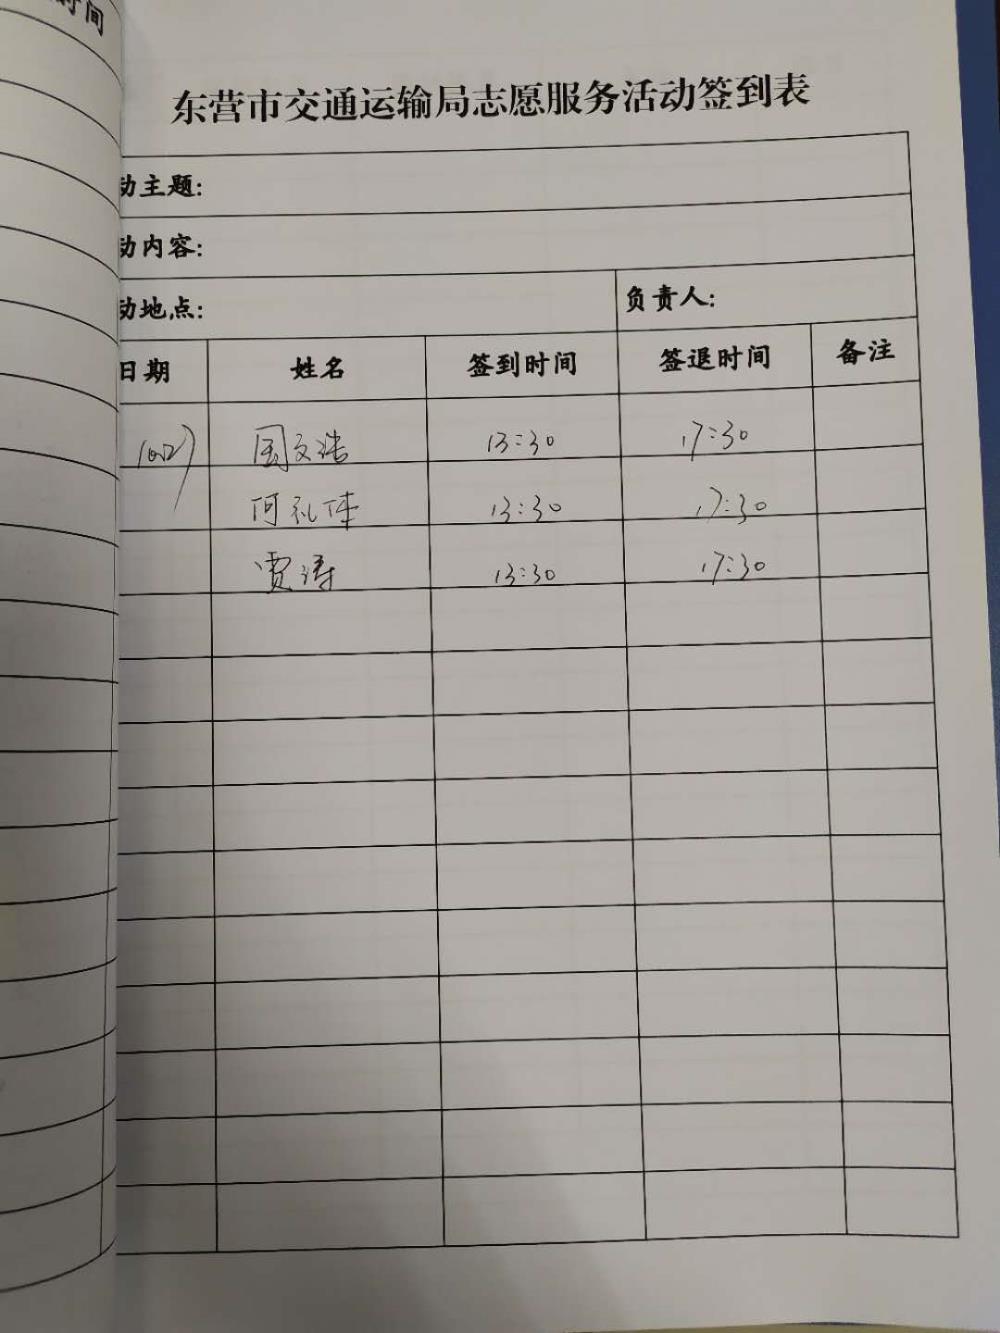 时间
东营市交通运输局志愿服务活动签到表
动主题:
动内容:
动地点: 负责人:
日期 姓名 签到时间 签退时间 备注
国文浩 13:30 17:30
何礼佳 13:30 17:30
贾涛 13:30 17:30